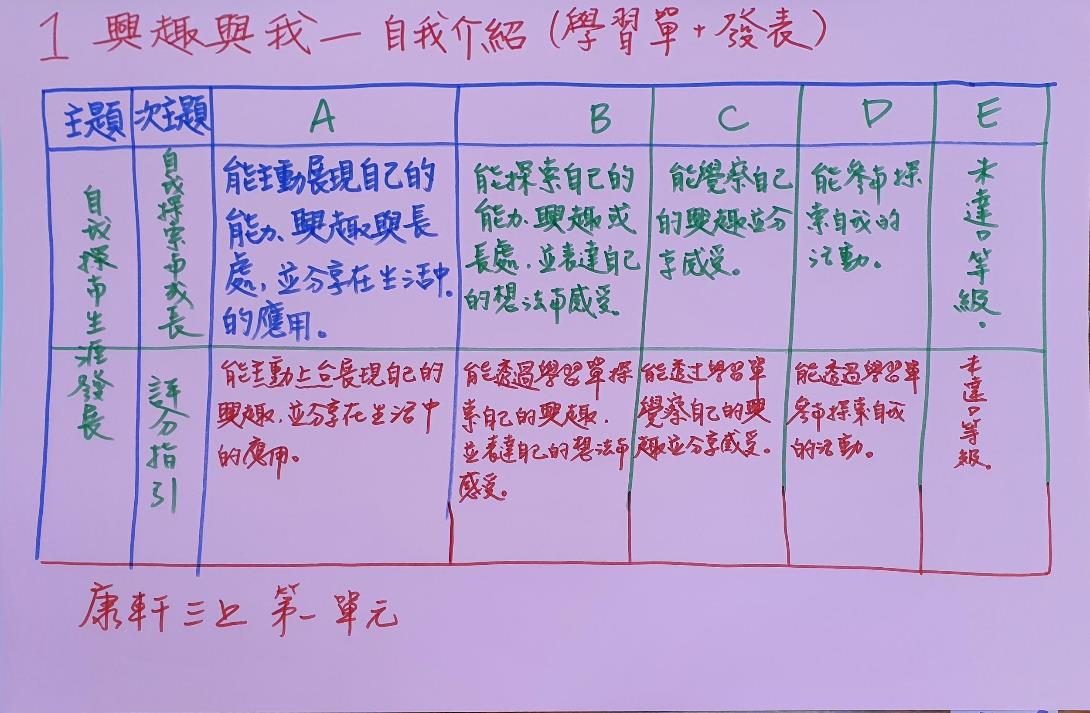 1 興趣與我—自我介紹(學習單+發表)
主題
次主題
A
B
C
D
E
自我探索與生涯發展
自我探索與成長
能主動展現自己的
能力、興趣與長
處,並分享在生活中
的應用。
能探索自己的
能力、興趣或
長處,並表達自己
的想法與感受。
能覺察自己
的興趣並分
享感受。
能參與探
索自我的
活動。
未達D等級。
評分指引
能主動上台展現自己的
興趣,並分享在生活中
的應用。
能透過學習單探
索自己的興趣,
並表達自己的想法與
感受。
能透过學習單
覺察自己的興
趣並分享感受。
能透過學習單
參與探索自我
的活動。
未達D等級。
康軒三上 第一單元